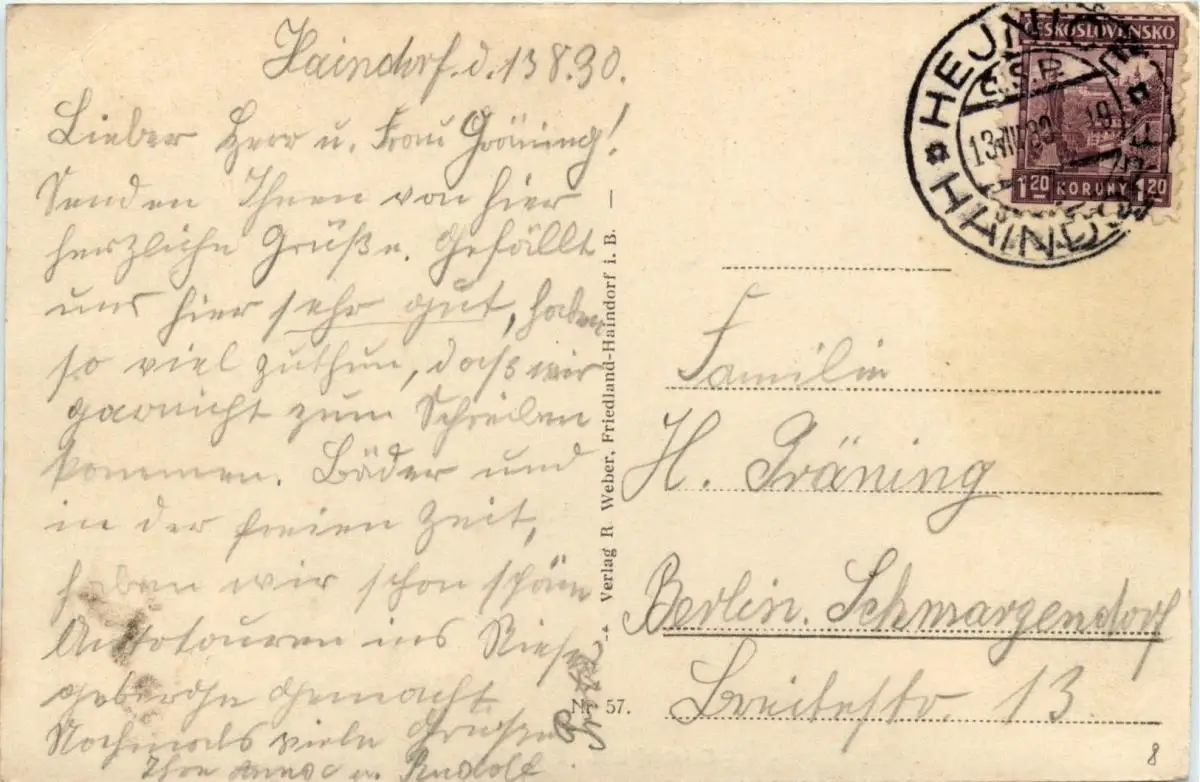 Haindorf. d. 13 8. 30.
Lieber Herr u. Frau Gräning!
Senden Ihnen von hier
herzliche Grüße. Gefällt
uns hier sehr gut, haben
so viel zuthun, daß wir
garnicht zum Schreiben
kommen. Bäder und
in der freien Zeit,
haben wir schon schöne
Autotouren ins Riesen
gebirge gemacht
Nochmals viele Grüße
u. Rudolf
Verlag R Weber, Friedland-Haindorf i. B.
Nr. 57.
HEJNICE
Č.S.R.
HAINDORF
ČESKOSLOVENSKO
1.20 KORUNY 1.20
Familie
H. Gräning
Berlin. Schmargendorf
Breitestr. 13.
8